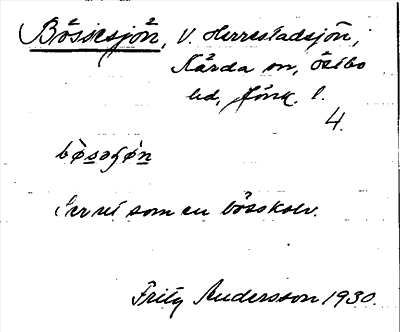 Bössesjön, V. Herrestadsjön,
Kärda sn, Östbo
hd, Jönk. l.
4.
Ser ut som en bösskolv.
Fritz Andersson 1930.